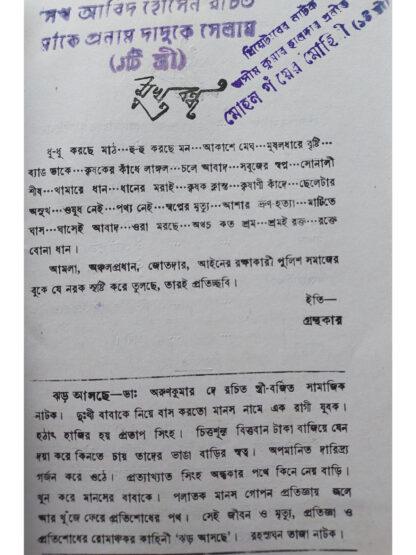 সেখ আবিদ হোসেন রচিত
মাকে প্রনাম দাদুকে সেলাম
(১টি স্ত্রী)
থিয়েটারের নাটক
অসীম কুমার হালদার প্রনীত
মোহন গাঁয়ের মোহিনী (১টি স্ত্রী)
মুখবন্ধ
ধু-ধু করছে মাঠ···হু-হু করছে মন···আকাশে মেঘ···মুষলধারে বৃষ্টি···
ব্যাঙ ডাকে···কৃষকের কাঁধে লাঙ্গল···চলে আবাদ···সবুজের স্বপ্ন···সোনালী
শীষ···খামারে ধান···ধানের মরাই···কৃষক ক্লান্ত···কৃষাণী কাঁদে···ছেলেটার
অসুখ···ওষুধ নেই···পথ্য নেই···স্বপ্নের মৃত্যু···আশার ভ্রূণ-হত্যা···মাটিতে
ঘাস···ঘাসেই আবাদ···ওরা মরছে···অথচ কত শ্রম···শ্রমই রক্ত···রক্তে
বোনা ধান।
আমলা, অঞ্চলপ্রধান, জোতদার, আইনের রক্ষাকারী পুলিশ সমাজের
বুকে যে নরক সৃষ্টি করে তুলছে, তারই প্রতিচ্ছবি।
ইতি—
গ্রন্থকার
ঝড় আসছে—ডাঃ অরুণকুমার দে রচিত স্ত্রী-বর্জিত সামাজিক
নাটক। দুঃখী বাবাকে নিয়ে বাস করতো মানস নামে এক রাগী যুবক।
হঠাৎ হাজির হয় প্রতাপ সিংহ। চিত্তশূন্য বিত্তবান টাকা বাজিয়ে যেন
দয়া করে কিনতে চায় তাদের ভাঙা বাড়ির স্বত্ব। অপমানিত দারিদ্র্য
গর্জন করে ওঠে। প্রত্যাখ্যাত সিংহ অন্ধকার পথে কিনে নেয় বাড়ি।
খুন করে মানসের বাবাকে। পলাতক মানস গোপন প্রতিজ্ঞায় জ্বলে
আর খুঁজে ফেরে প্রতিশোধের পথ। সেই জীবন ও মৃত্যু, প্রতিজ্ঞা ও
প্রতিশোধের রোমাঞ্চকর কাহিনী ‘ঝড় আসছে’। রহস্যঘন তাজা নাটক।